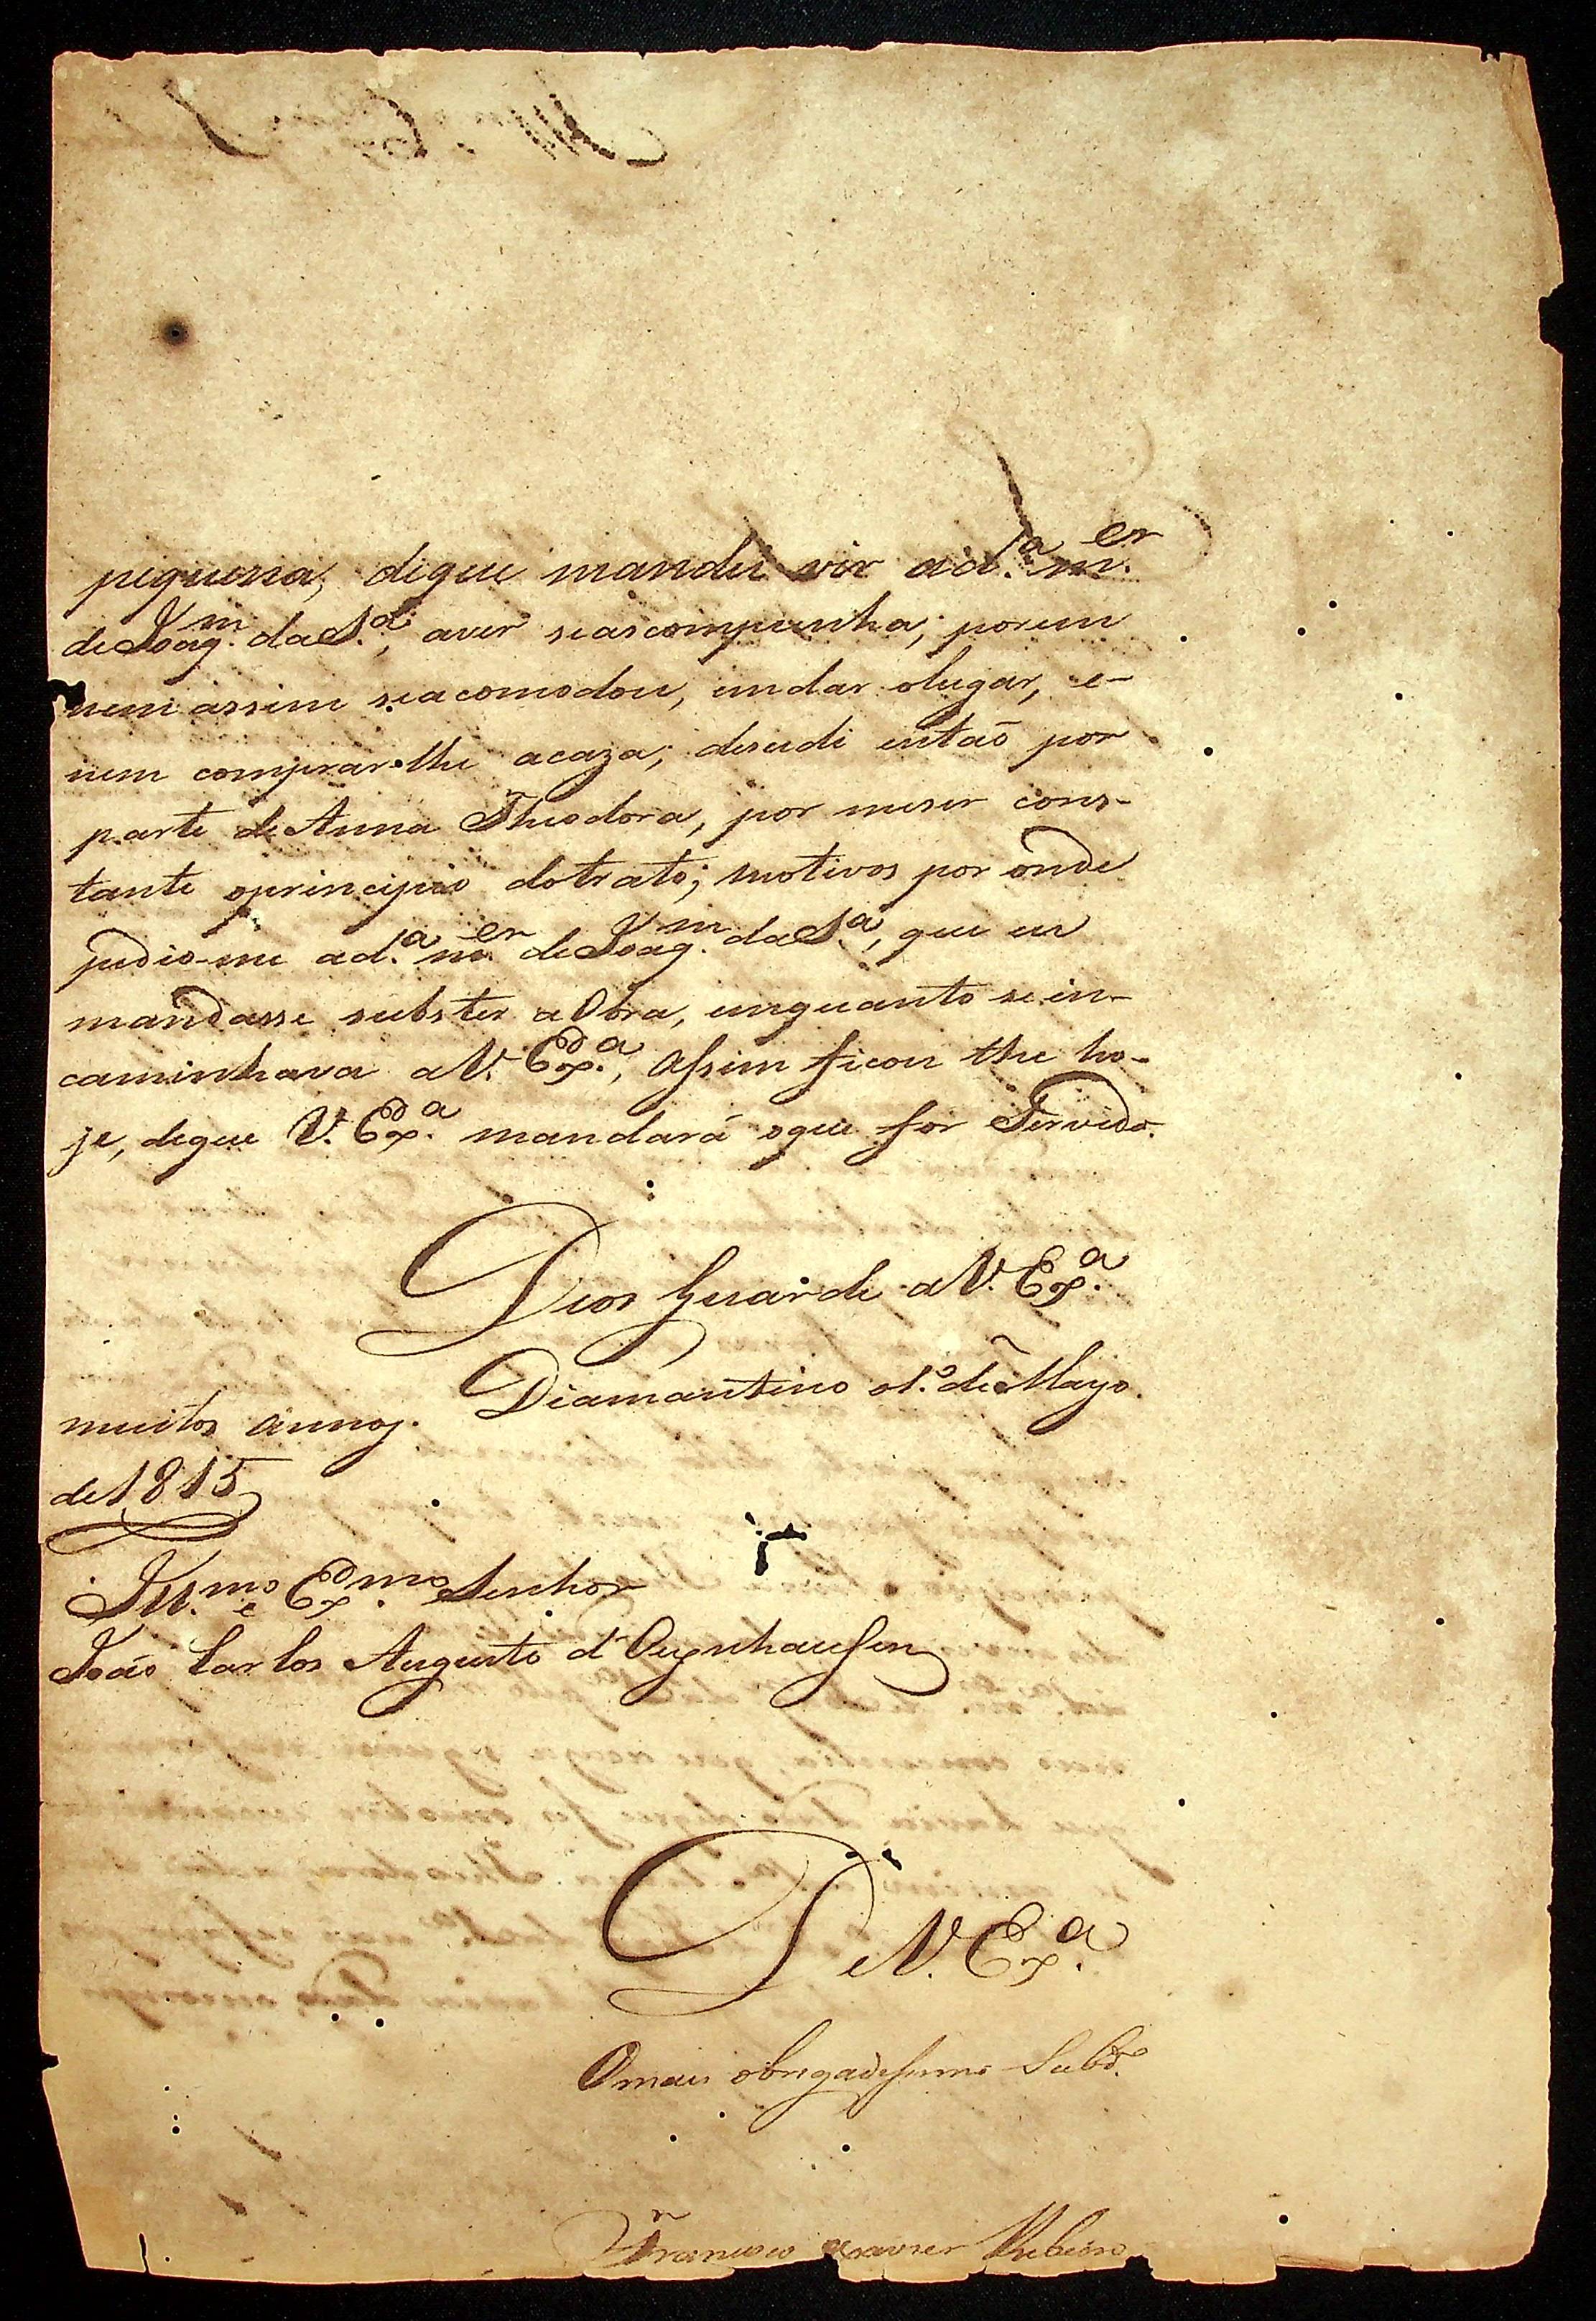 piquena, deque mandei vir ad.ª m.er
de Joaq.m daS.ª, aver seascompunha; porem
nem assim seacomodou, emdar olugar, e-
nem comprar-lhe acaza; desedi entaõ por
parte de Anna Theodora, por meser cons-
tante oprincipio dotrato; motivos por onde
pedio-me ad.ª m.er de Joaq.m daS.ª, que eu
mandasse subster a Obra, enquanto se in-
caminhava aV. Ex.ª, Assim ficou the ho-
je, deque V. Ex.ª mandará oque for Servido.
Deos Guarde aV. Ex.ª
muitos annos. Diamantino o1.º de Mayo
de 1815
Ill.mo e Ex.mo Senhor
João Carlos Augusto d'Oeynhausen
DeV. Ex.ª
Omais obrigadissimo Subd.º
Francisco Xavier Ribeiro